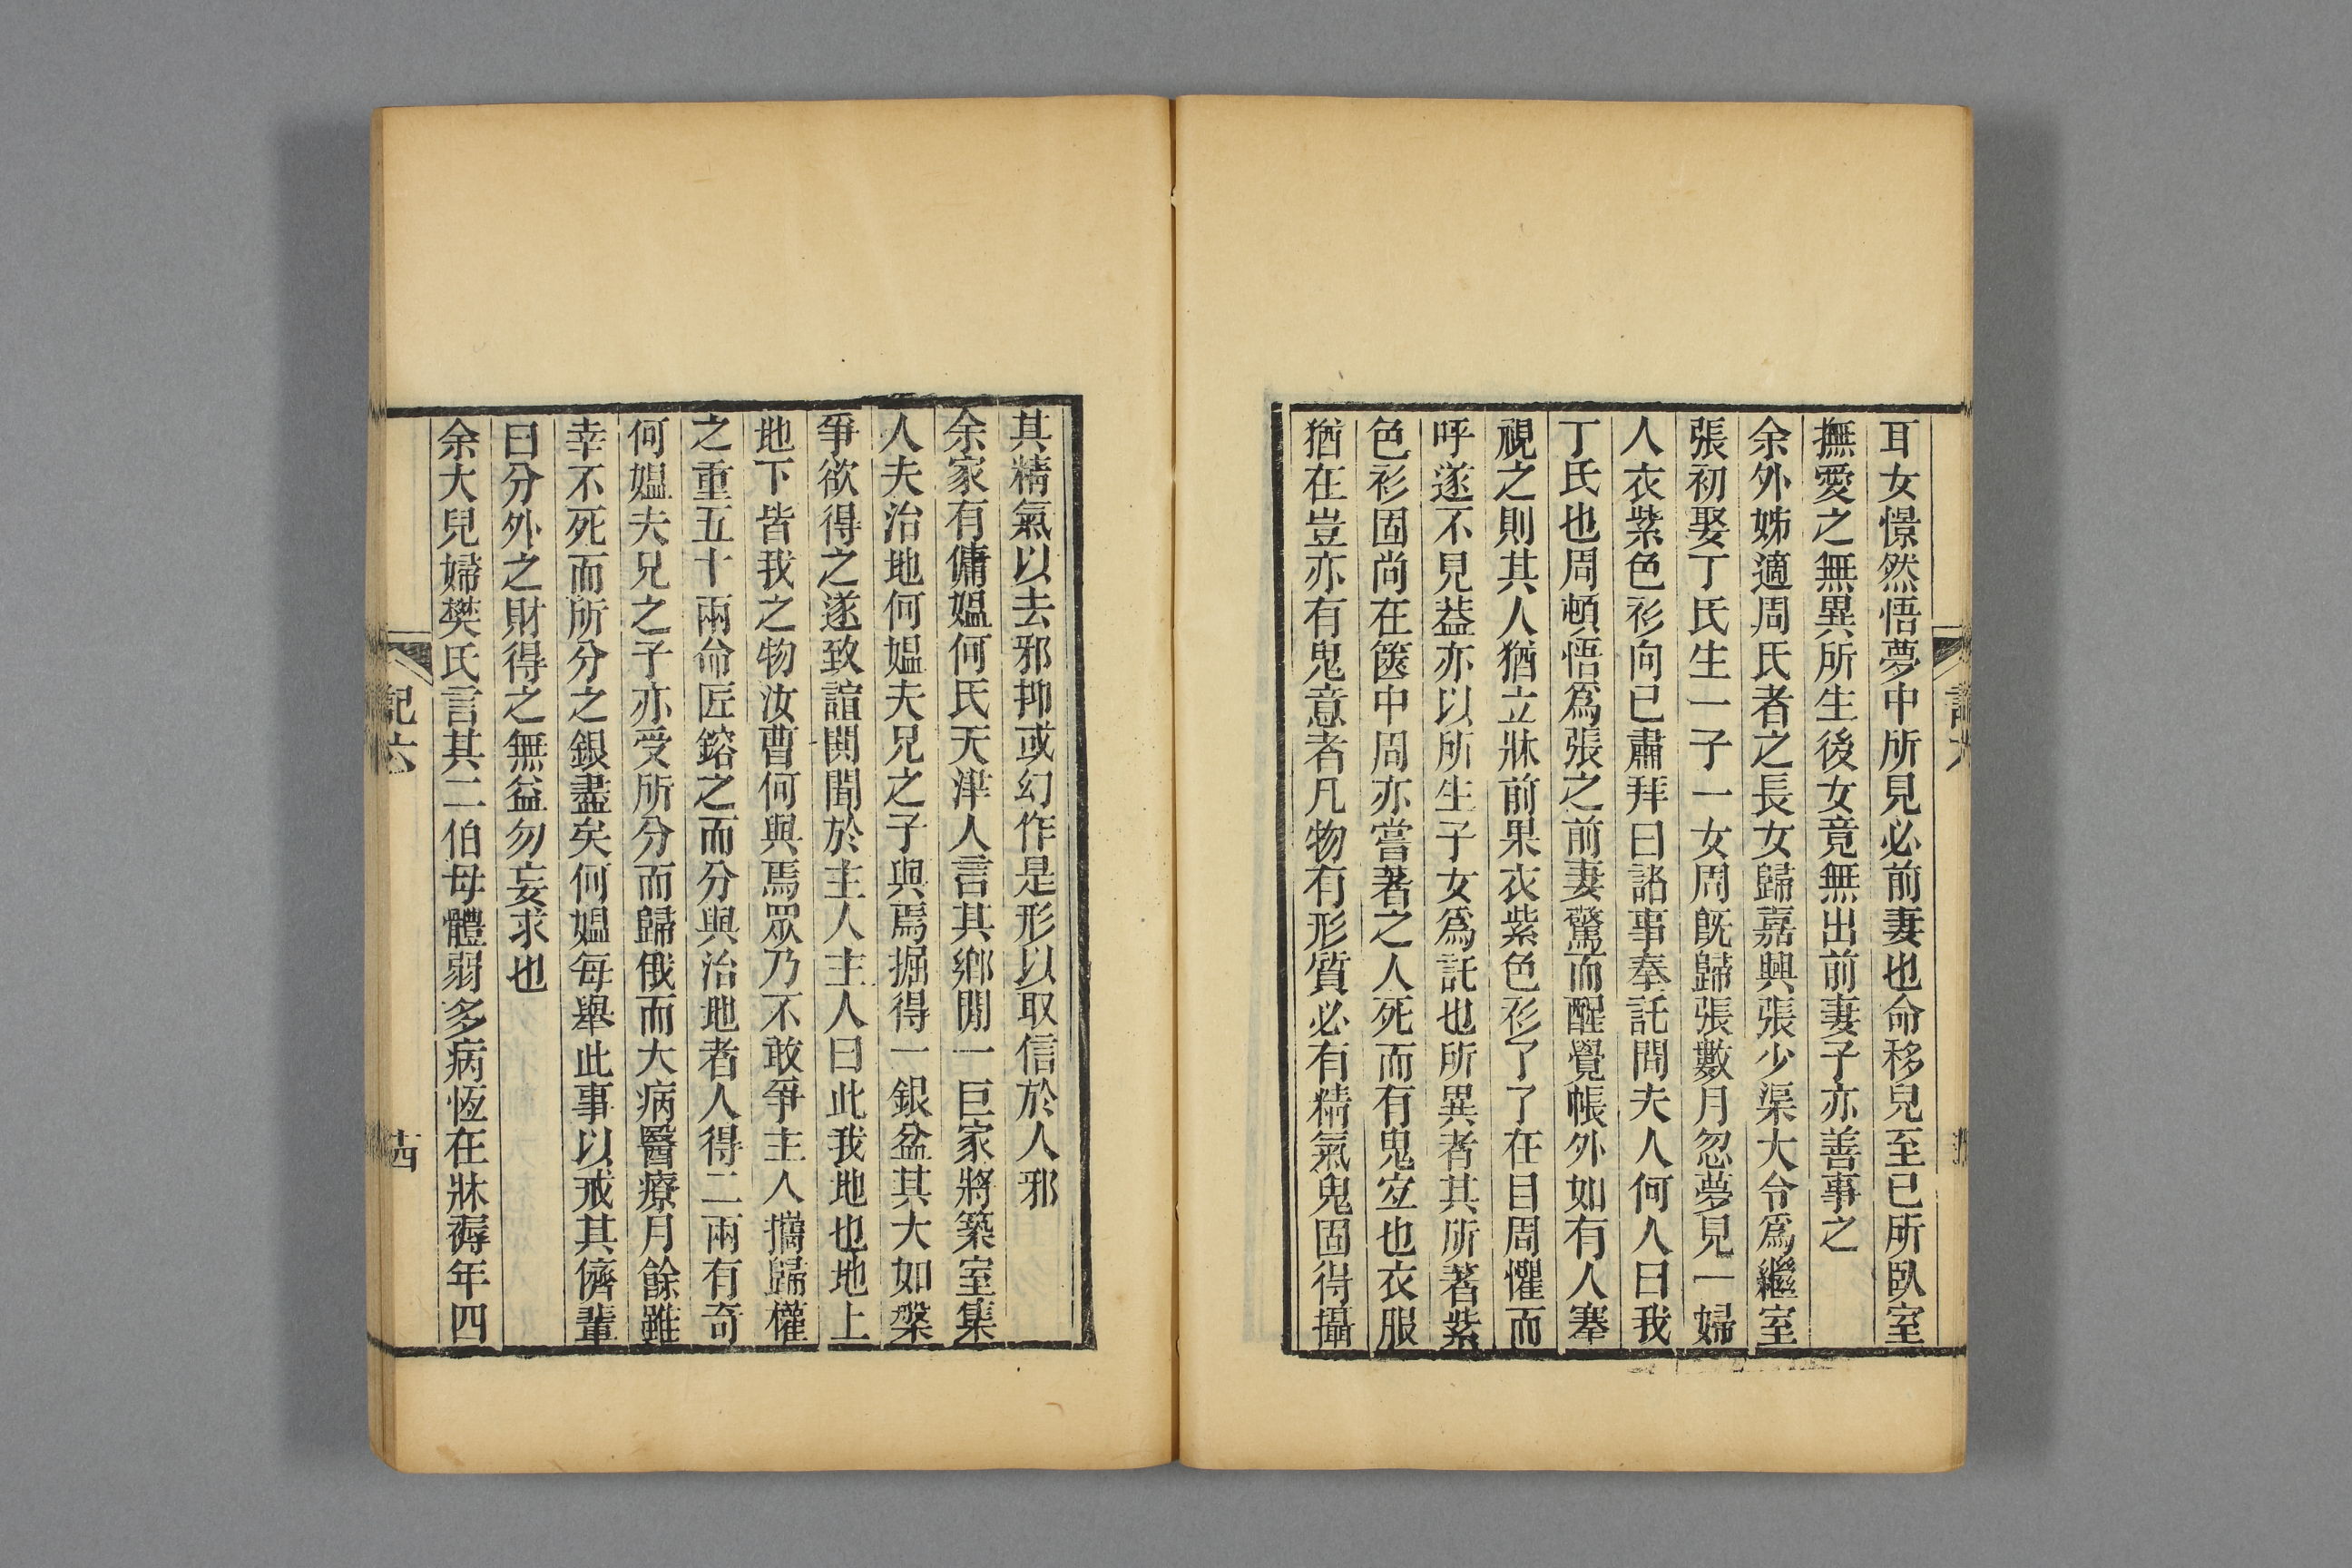 耳女憬然悟夢中所見必前妻也命移兒至已所臥室
撫愛之無異所生後女竟無出前妻子亦善事之
余外姊適周氏者之長女歸嘉興張少渠大令爲繼室
張初娶丁氏生一子一女周旣歸張數月忽夢見一婦
人衣紫色衫向已肅拜曰諸事奉託問夫人何人曰我
丁氏也周頓悟爲張之前妻驚而醒覺帳外如有人搴
視之則其人猶立牀前果衣紫色衫了了在目周懼而
呼遂不見葢亦以所生子女爲託也所異者其所著紫
色衫固尚在篋中周亦嘗著之人死而有鬼宜也衣服
猶在豈亦有鬼意者凡物有形質必有精氣鬼固得攝
其精氣以去邪抑或幻作是形以取信於人邪
余家有傭媼何氏天津人言其鄉閒一巨家將築室集
人夫治地何媼夫兄之子與焉掘得一銀盆其大如槃
爭欲得之遂致諠鬨聞於主人主人曰此我地也地上
地下皆我之物汝曹何與焉眾乃不敢爭主人攜歸權
之重五十兩命匠鎔之而分與治地者人得二兩有奇
何媼夫兄之子亦受所分而歸俄而大病醫療月餘雖
幸不死而所分之銀盡矣何媼每舉此事以戒其儕輩
曰分外之財得之無益勿妄求也
余大兒婦樊氏言其二伯母體弱多病恆在牀褥年四
記六